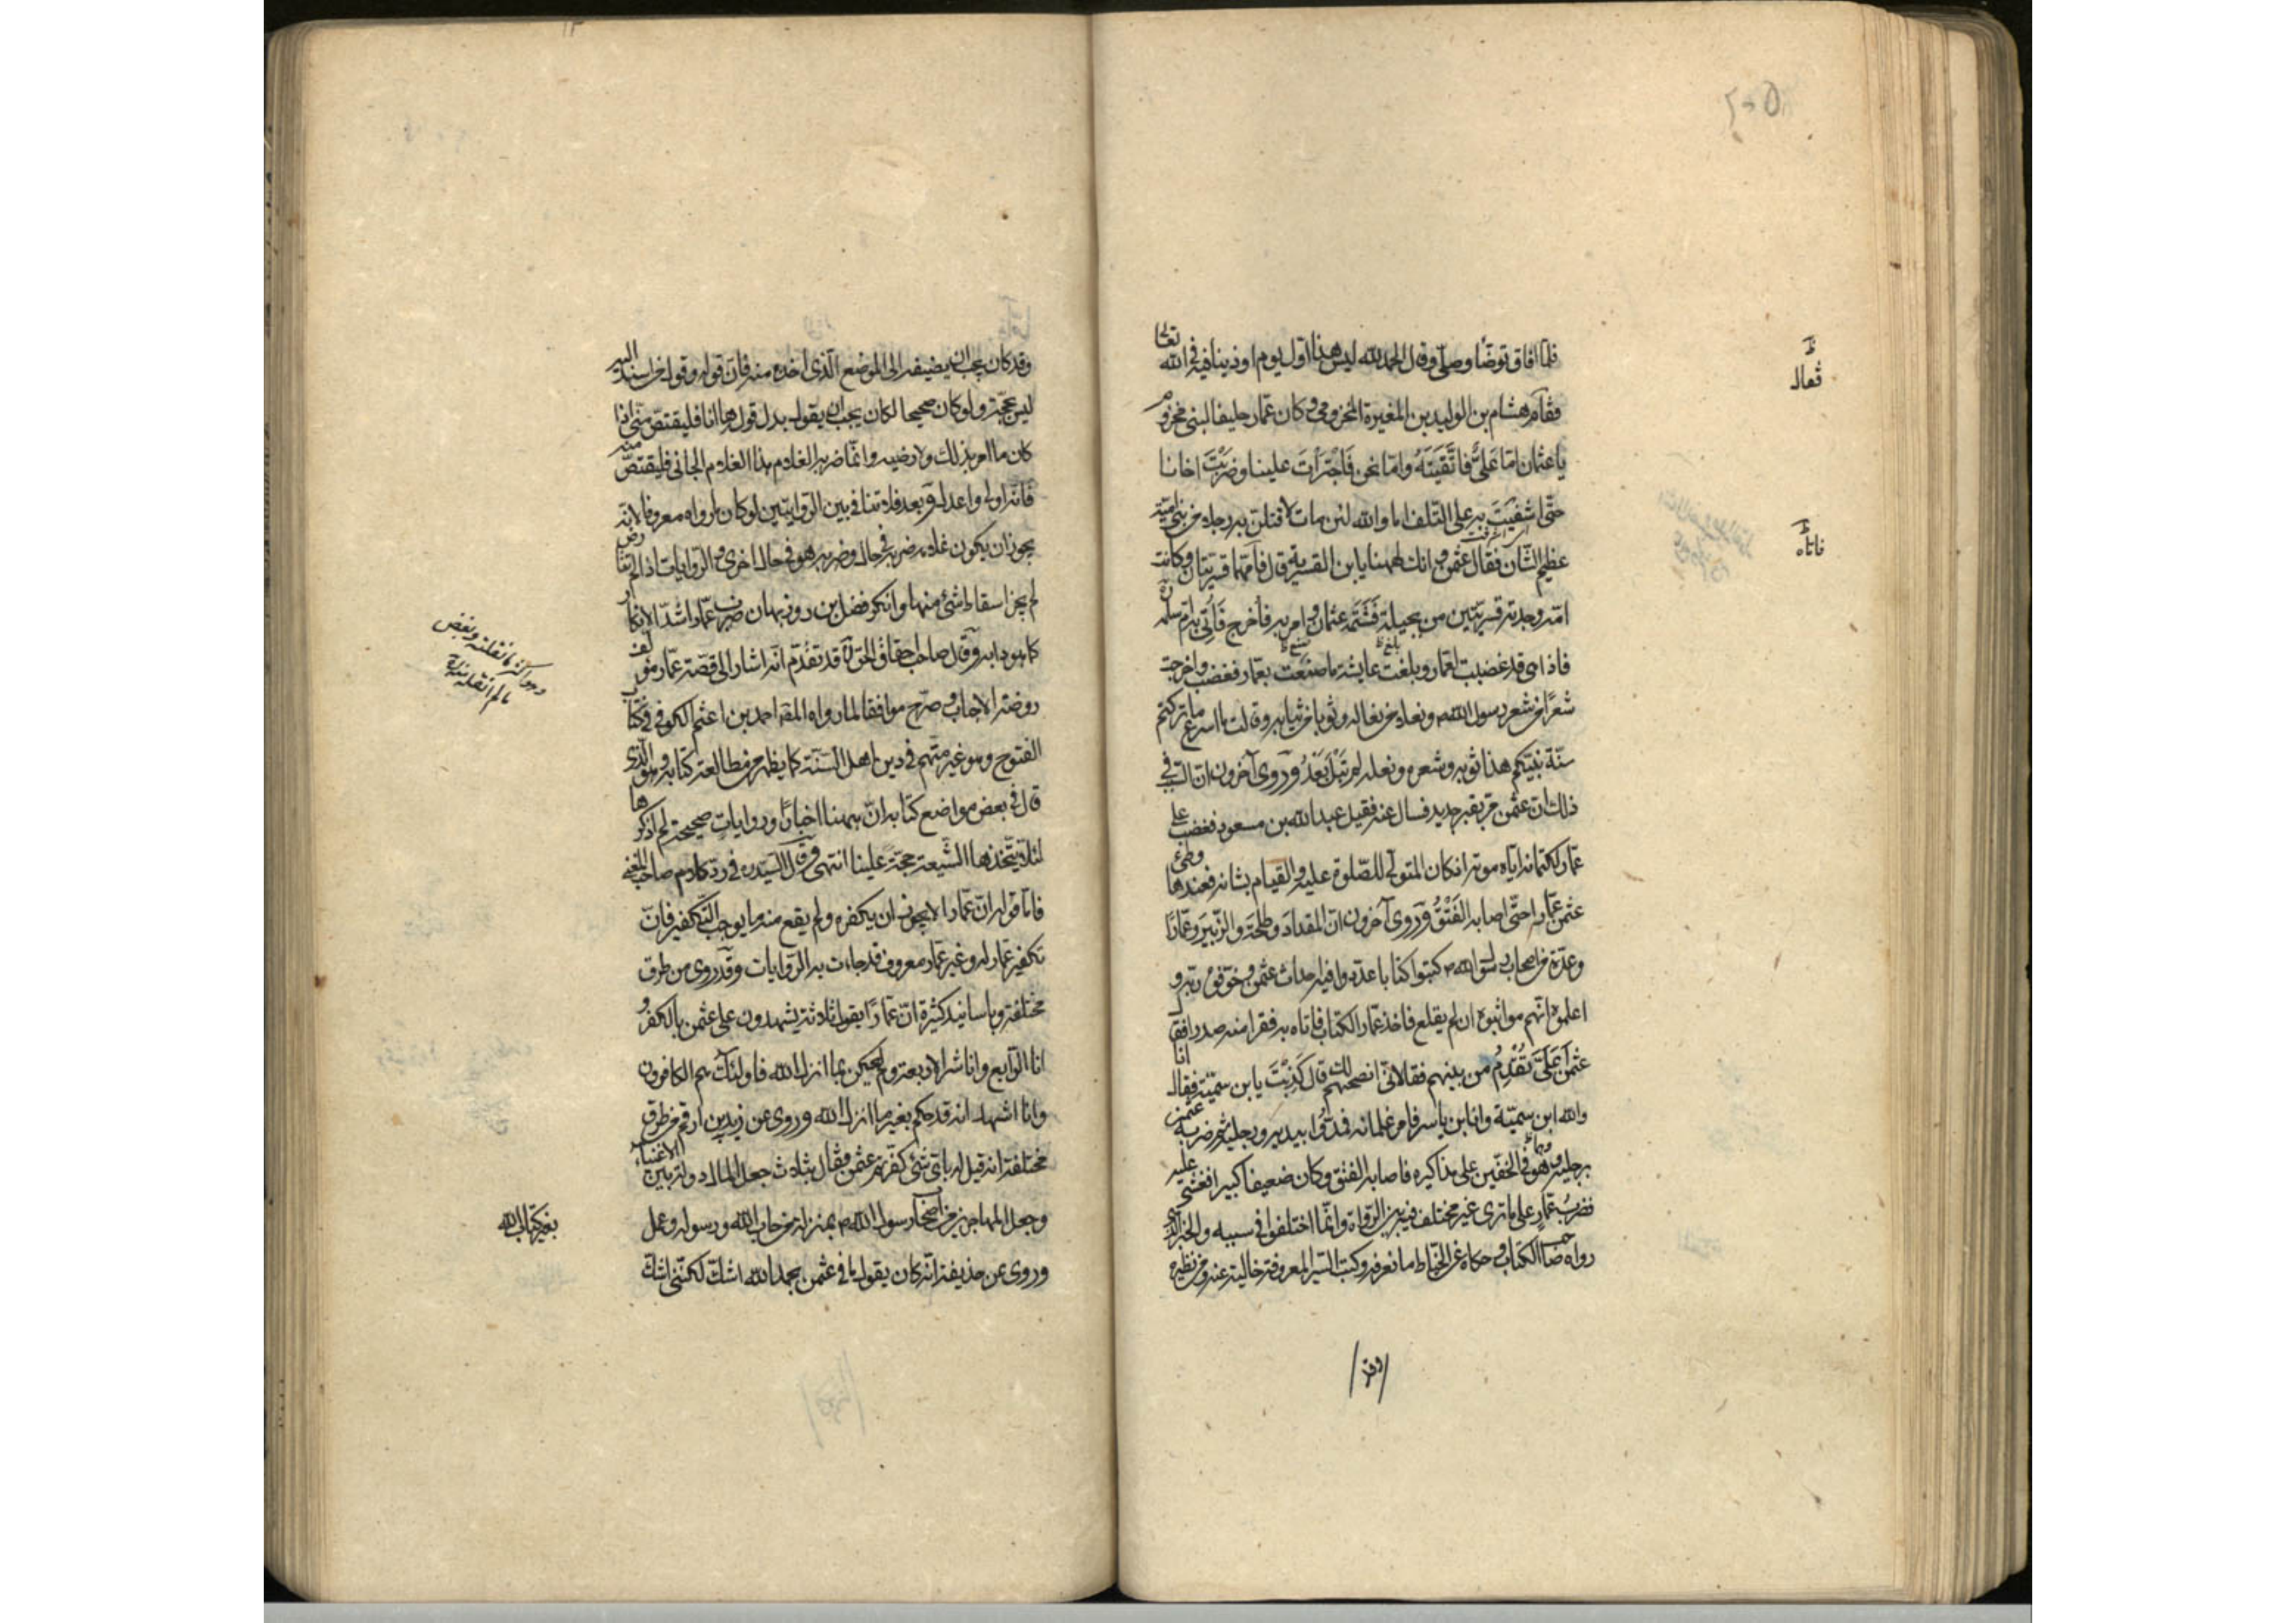 فلما افاق توضا وصلى وقال الحمد لله ليس هذا اول يوم اوذينا فيه في الله تعالى
فقام هشام بن الوليد بن المغيرة المخزومي وكان عمار حليفا لبني مخزوم
يا عثمان اما علي فاتقيته واما نحن فاجترات علينا وضربت اخانا
حتى اشفيت به على التلف اما والله لئن مات لاقتلن به رجلا من بني امية
عظيم الشان فقال عثمن وانك لههنا يابن القسرية قال فانهما قسريتان وكانت
امه وجدته قسريتين من بجيلة فشتمه عثمان وامر به فاخرج فاتي به ام سلمة
فاذا هي قد غضبت لعمار وبلغت عايشة ما صنعت بعمار فغضبت واخرجت
شعرا من شعر رسول الله ص ونعلا من نعاله وثوبا من ثيابه وقالت ما اسرع ما تركتم
سنة نبيكم هذا ثوبه وشعره ونعله لم تبل بعد وروى آخرون ان السبب في
ذلك ان عثمن مر بقبر جديد فسال عنه فقيل عبد الله بن مسعود فغضب على
عمار لكتمانه اياه موته اذ كان المتولي للصلوة عليه والقيام بشانه فعندها وطئ
عثمن عمارا حتى اصابه الفتق وروى آخرون ان المقداد وطلحة والزبير وعمارا
وعدة من اصحاب رسول الله ص كتبوا كتابا عددوا فيه احداث عثمن وخوفوه ربه و
اعلموه انهم مواثبوه ان لم يقلع فاخذ عمار الكتاب فاتاه به فقرا منه صدرا فقال
عثمن اعلي تقدم من بينهم فقال لاني انصحهم لك قال كذبت يابن سمية فقال انا
والله ابن سمية وانا ابن ياسر فامر غلمانه فمدوا بيديه ورجليه ثم ضربه عثمن
برجليه وهو في الخفين على مذاكيره فاصابه الفتق وكان ضعيفا كبيرا فغشي عليه
فضرب عمار على ما ترى غير مختلف فيه بين الرواة وانما اختلفوا في سببه والخبر الذي
رواه صاحب الكتاب وحكاه عن الخياط ما نعرفه وكتب السير المعروفة خالية عنه ومن نظيره
فقال
فاتاه
وقد
وقد كان يجب ان يضيفه الى الموضع الذي اخذه منه فان قوله وقول من اسند اليه
ليس بحجة ولو كان صحيحا لكان يجب ان يقول بدل قوله ها انا فليقتص مني اذا
كان ما امر بذلك ولا رضيه وانما ضربه الغلام هذا الغلام الجاني فليقتص منه
فانه اولى واعدل وبعد فلا تنافي بين الروايتين لو كان ما رواه معروفا لانه
يجوز ان يكون غلامه ضربه في حال وضربه هو في حال اخرى والروايات اذا لم تتعارض
لم يجز اسقاط شئ منها وانكر فضل بن روزبهان ضرب عمار اشد الانكار
كما هو دابه وقال صاحب احقاق الحق ره قد تقدم انه اشار الى قصة عمار مؤلف
روضة الاحباب وصرح موافقا لما رواه احمد بن اعثم الكوفي في كتاب
الفتوح وهو غير متهم في دين اهل السنة كما يظهر من مطالعة كتابه وهو الذي
قال في بعض مواضع كتابه ان ههنا اخبارا وروايات صحيحة لم اذكرها
لئلا يتخذها الشيعة حجة علينا انتهى وقال السيد ره في رد كلام صاحب المغني
فاما قوله ان عمارا لا يجوز ان يكفره ولم يقع منه ما يوجب التكفير فان
تكفير عمار له وغير عمار معروف قد جاءت به الروايات وقد روى من طرق
مختلفة وباسانيد كثيرة ان عمارا يقول ثلاثة يشهدون على عثمن بالكفر و
انا الرابع وانا شر الاربعة ومن لم يحكم بما انزل الله فاولئك هم الكافرون
وانا اشهد انه قد حكم بغير ما انزل الله وروى عن زيد بن ارقم من طرق
مختلفة انه قيل له باي شئ كفرتم عثمن فقال بثلاث جعل المال دولة بين الاغنياء
وجعل المهاجرين من اصحاب رسول الله ص بمنزلة من حارب الله ورسوله وعمل
وروى عن حذيفة انه كان يقول ما في عثمن بحمد الله اشك لكنني اشك
بغير كتاب الله